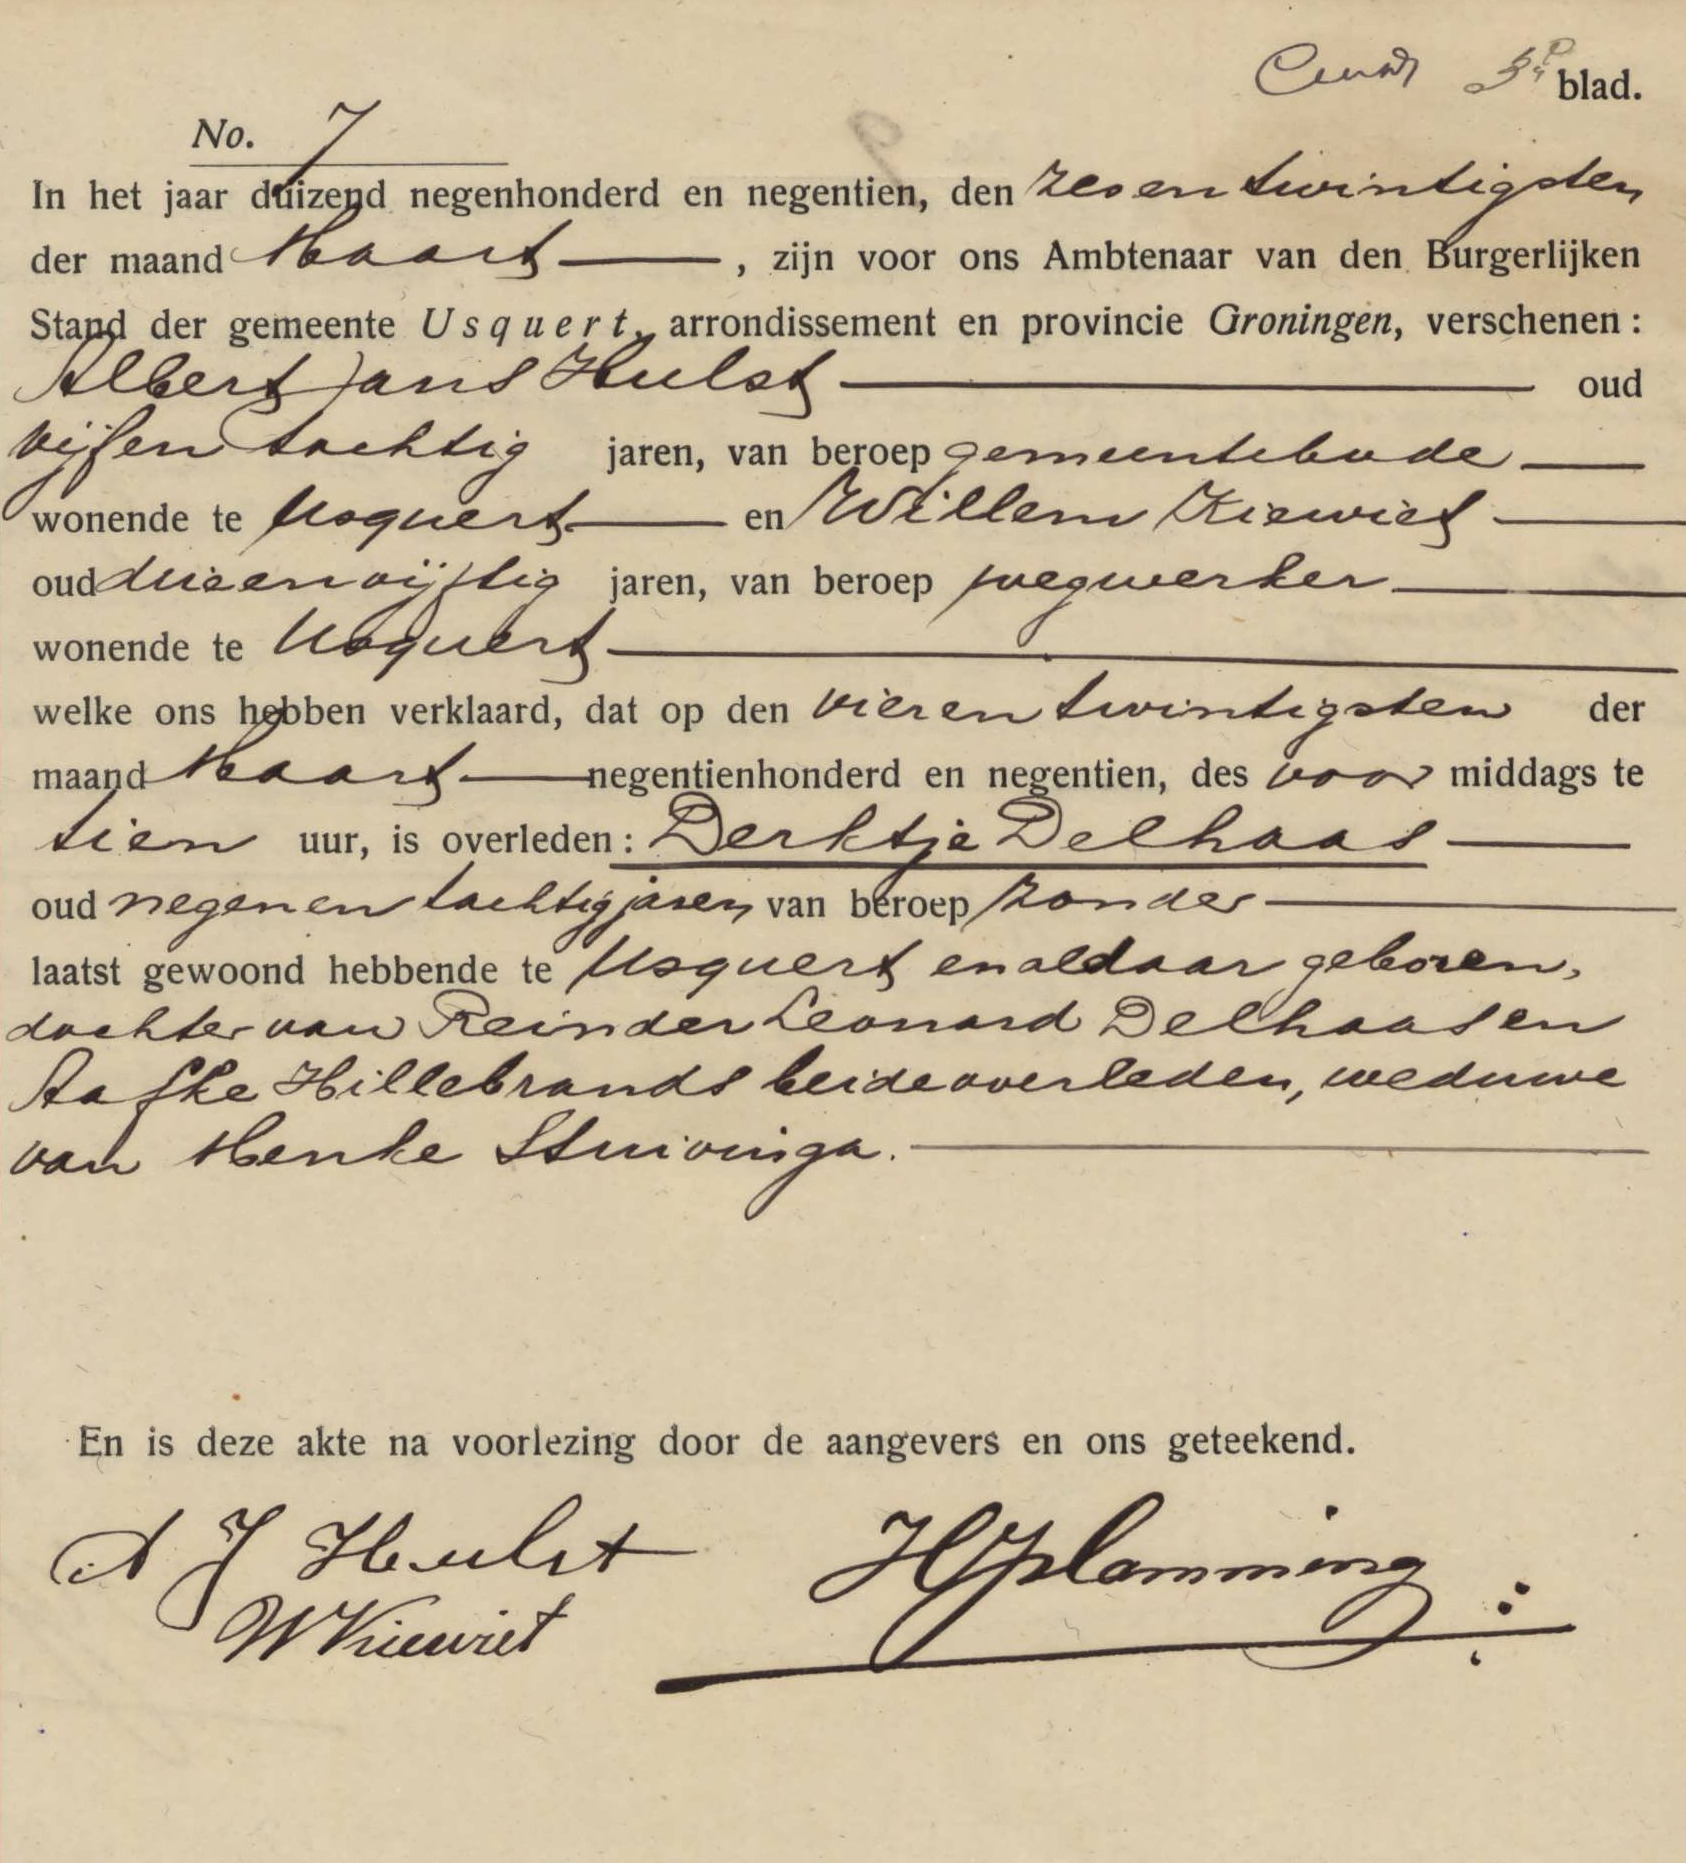 blad.
No. 7
In het jaar duizend negenhonderd en negentien, den zesentwintigsten
der maand Maart, zijn voor ons Ambtenaar van den Burgerlijken
Stand der gemeente Usquert, arrondissement en provincie Groningen, verschenen:
Albert Jans Hulst oud
vijfentachtig jaren, van beroep gemeentebode
wonende te Usquert en Willem Kiewiet
oud drieenvijftig jaren, van beroep wegwerker
wonende te Usquert
welke ons hebben verklaard, dat op den vierentwintigsten der
maand Maart negentienhonderd en negentien, des voor middags te
tien uur, is overleden: Derktje Delhaas
oud negenentachtig jaren, van beroep zonder
laatst gewoond hebbende te Usquert en aldaar geboren,
dochter van Reinder Leonard Delhaas en
Aafke Hillebrands beide overleden, weduwe
van Menke Stuivinga.
En is deze akte na voorlezing door de aangevers en ons geteekend.
A J Hulst
W Kiewiet